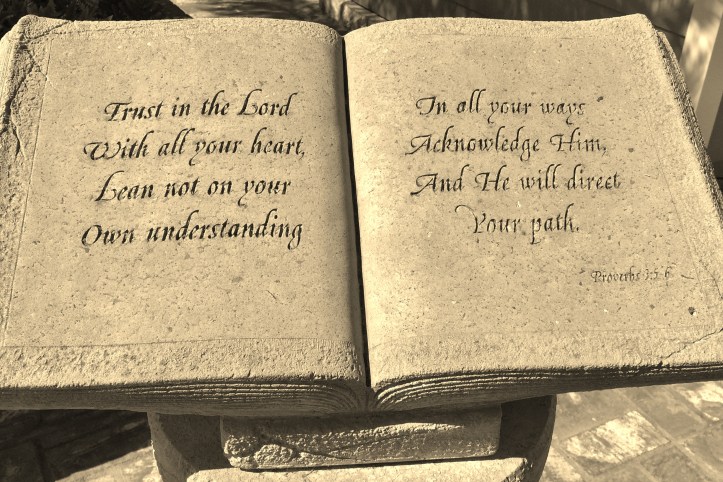 Trust in the Lord
With all your heart,
Lean not on your
Own understanding
In all your ways
Acknowledge Him,
And He will direct
Your path.
Proverbs 3:5-6